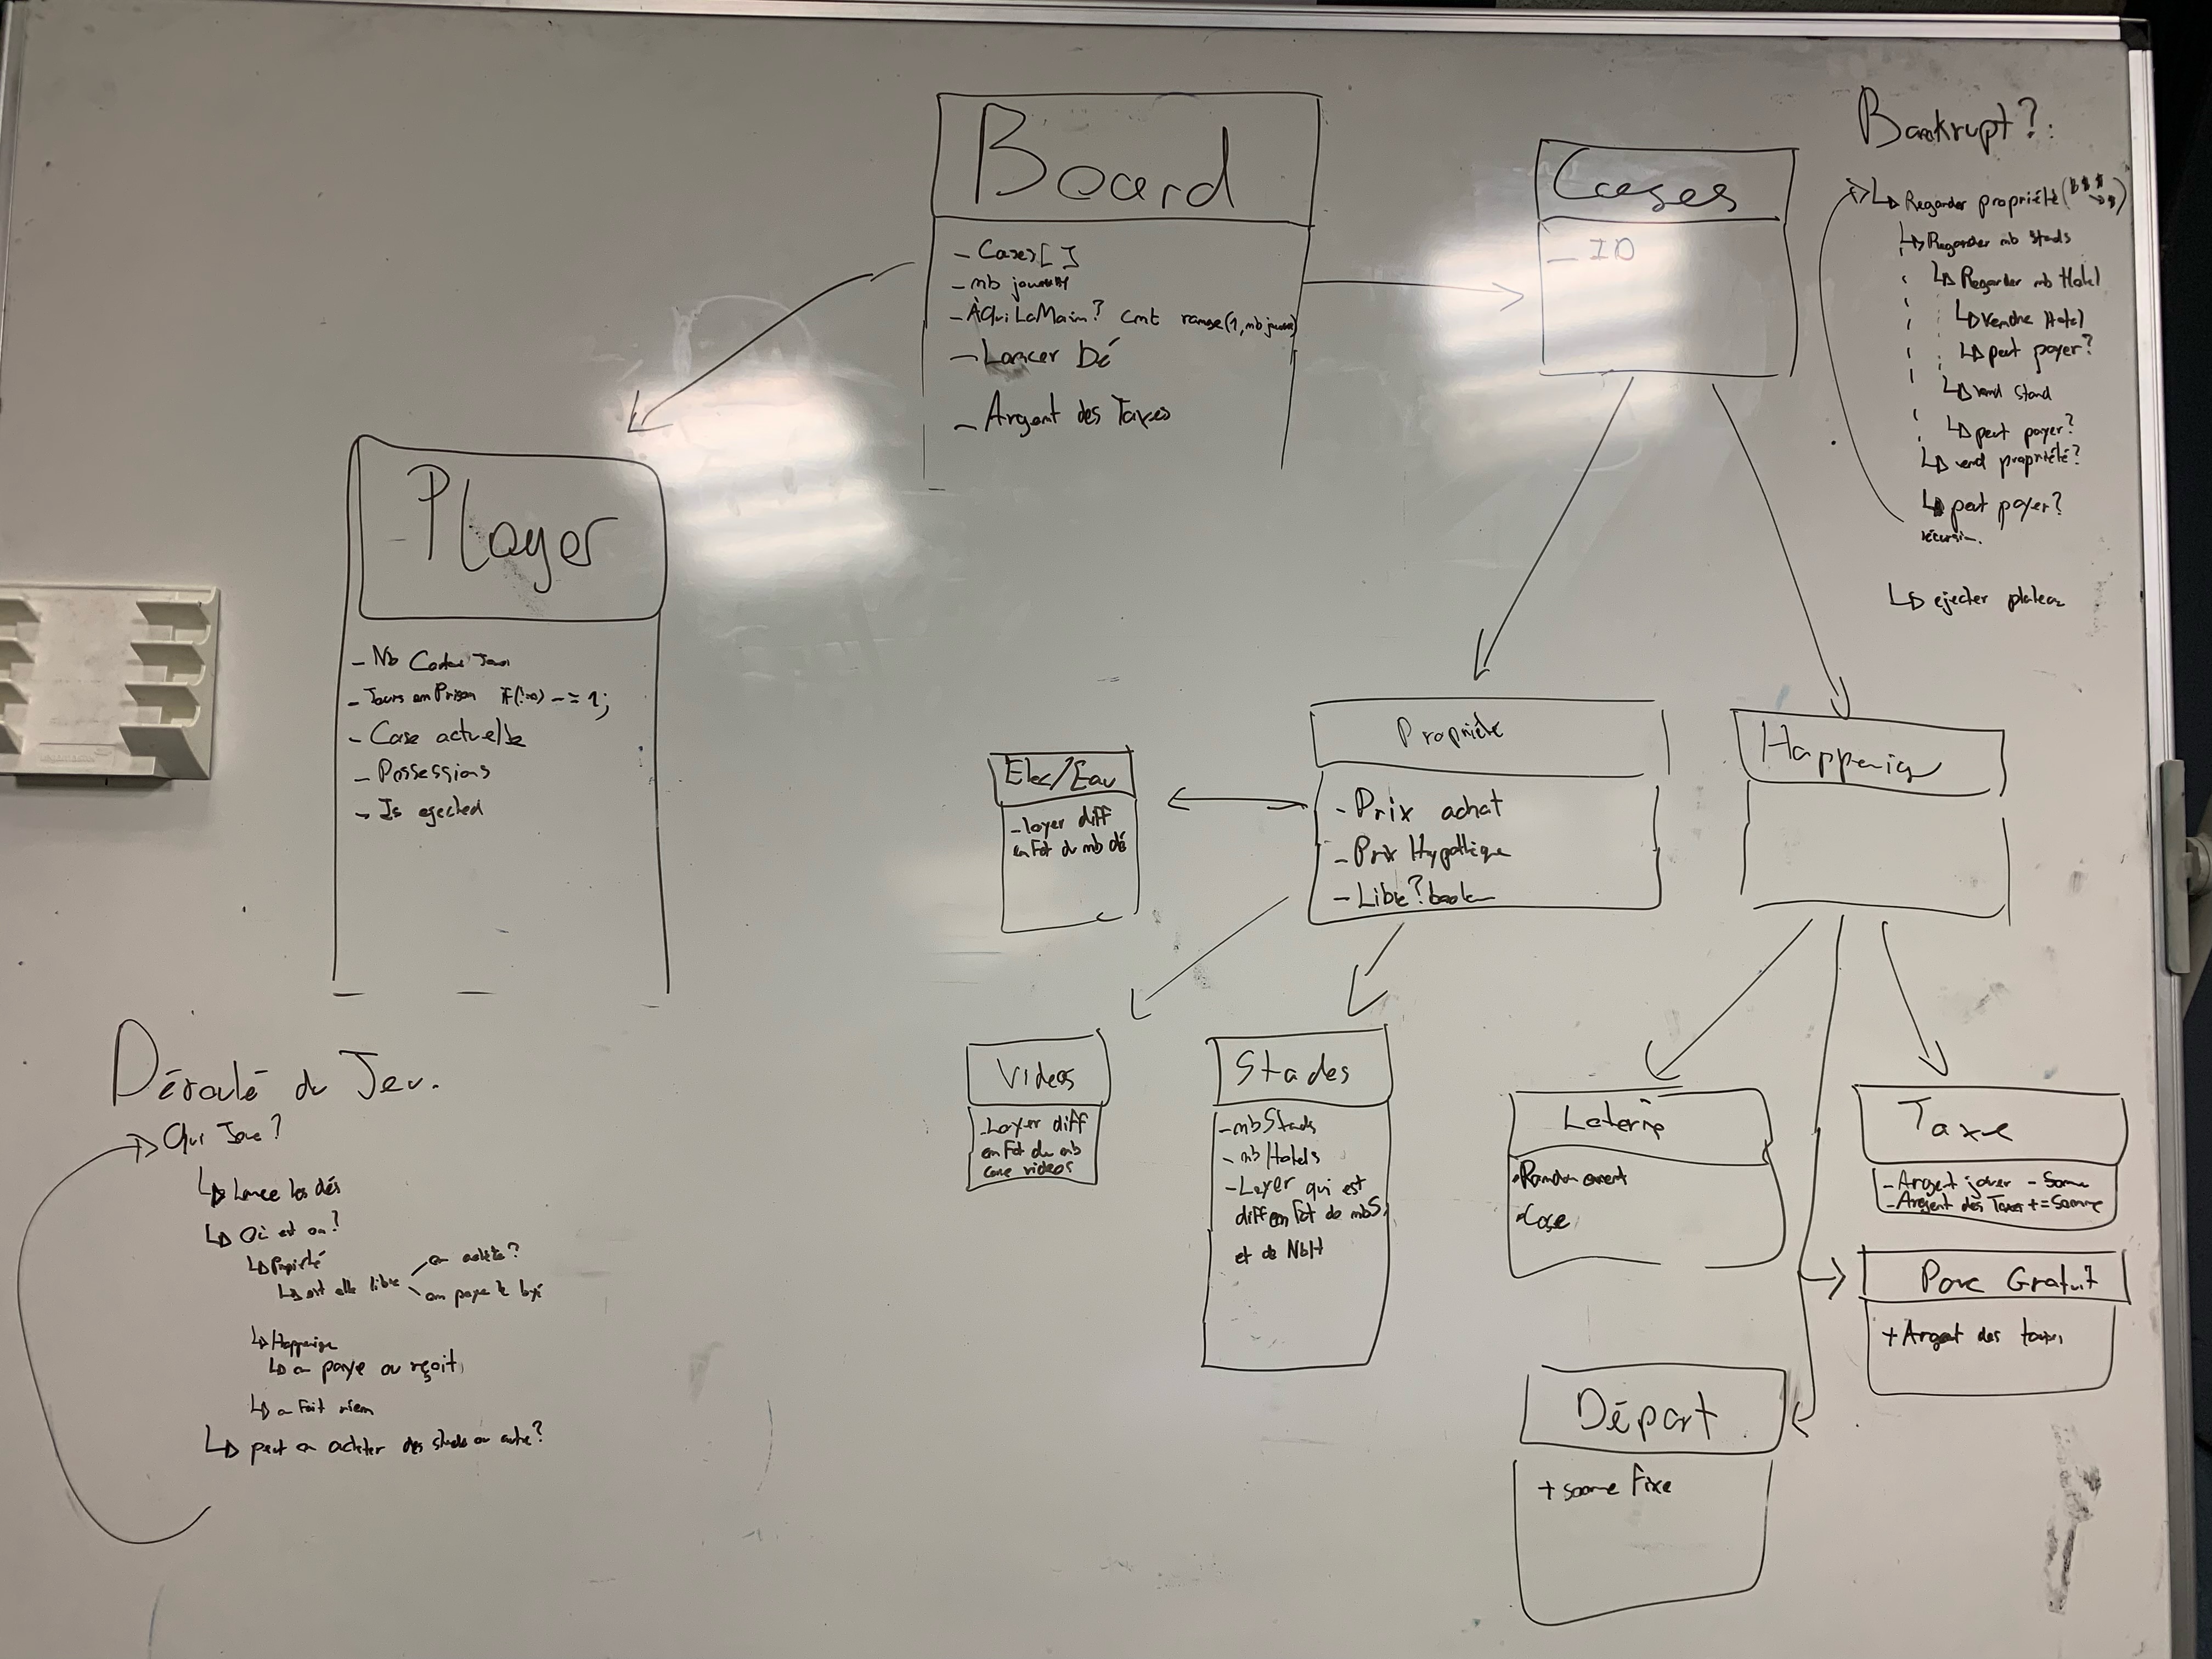 Board
- Cases[ ]
- nb joueurs
- ÀQuiLaMain? cmt range(1, nb joueurs)
- Lancer Dé
- Argent des Taxes
Cases
- ID
Bankrupt?:
Regarder propriété
Regarder nb Stads
Regarder nb Hotel
vendre Hotel
peut payer?
vend stand
peut payer?
vend propriété?
peut payer?
ejecter plateau
Player
- Nb
- Tours en Prison if(!=0) -= 1;
- Case actuelle
- Possessions
- Is ejected
Propriété
- Prix achat
- Prix Hypothèque
- Libre? boolean
Happening
Elec/Eau
- loyer diff
en Fct du nb dé
Videos
- Loyer diff
en Fct du nb
case videos
Stades
- nbStads
- nbHotels
- Loyer qui est
diff en Fct de nbS,
et de NbH
Loterie
Case
Taxe
- Argent jouer - Somme
- Argent des Taxes += Somme
Parc Gratuit
+ Argent des taxes
Départ
+ somme Fixe
Déroulé du Jeu.
Qui Joue?
Lance les dés
Où est on?
Propriété
est elle libre
on achète?
on paye le loyé
Happening
on paye ou reçoit
on fait rien
peut on acheter des stads ou autre?